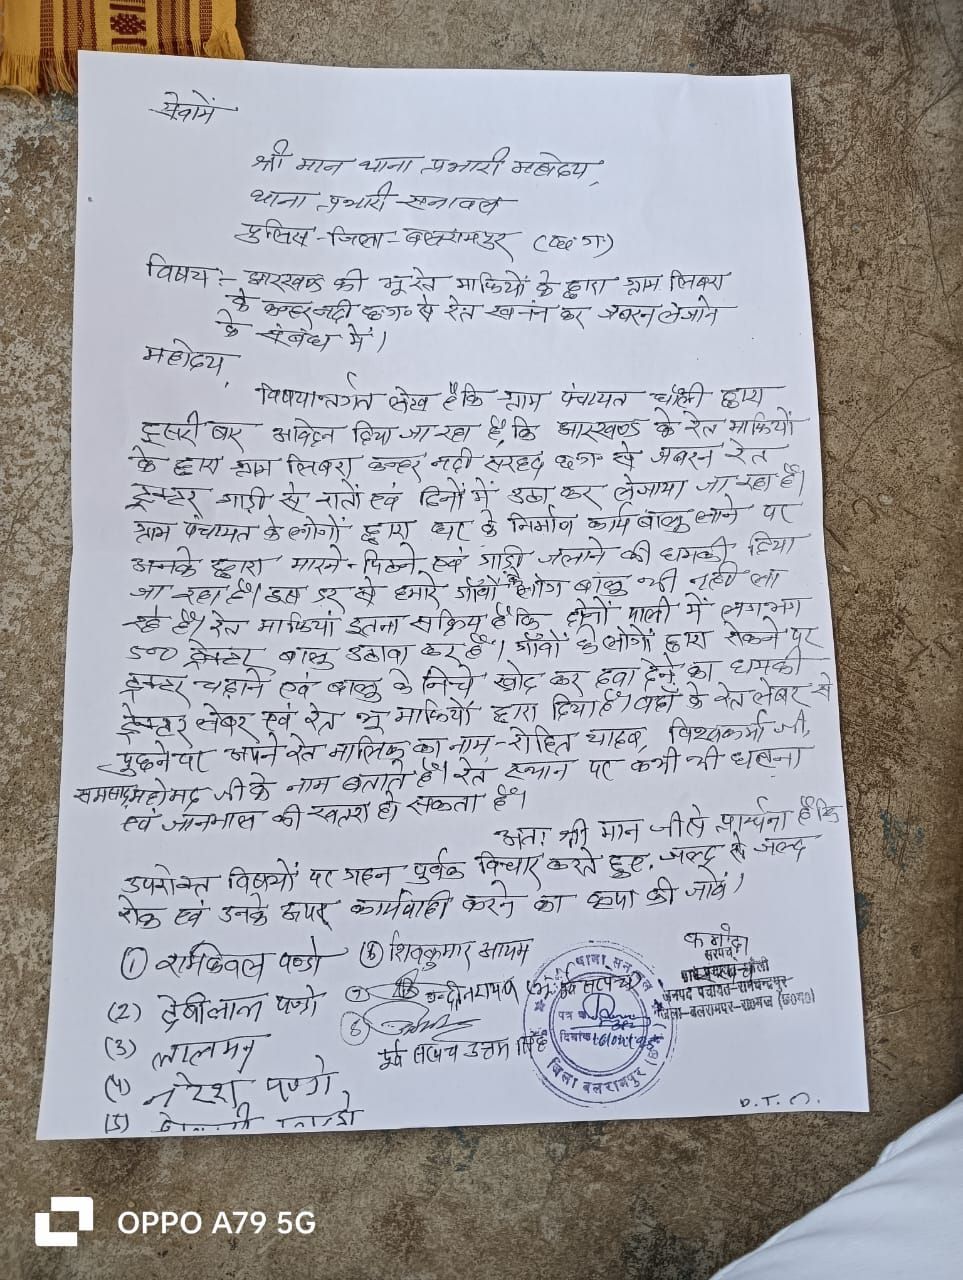 सेवामें
श्री मान थाना प्रभारी महोदय,
थाना प्रभारी सनावल
पुलिस-जिला-बलरामपुर (छ.ग.)
विषय:- झारखण्ड की भू रेत माफियों के द्वारा ग्राम लिबरा
के कन्हर नदी छ०ग० से रेत खनन कर जबरन लेजाने
के संबंध में।
महोदय,
विषयान्तर्गत लेख है कि ग्राम पंचायत द्वारा
दुसरी बार आवेदन दिया जा रहा है, कि झारखण्ड के रेत माफियों
के द्वारा ग्राम लिबरा कन्हर नदी सरहद छ०ग० से जबरन रेत
ट्रेक्टर गाड़ी से रातों एवं दिनों में उठा कर लेजाया जा रहा है।
ग्राम पंचायत के लोगों द्वारा घर के निर्माण कार्य बालु लाने पर
उनके द्वारा मारने-पिटने एवं गाड़ी जलाने की धमकी दिया
जा रहा है। इस डर से हमारे गाँवों के लोग बालु भी नहीं ला
रहे है। रेत माफियां इतना सक्रिय है कि दोनों पाली में लगभग
ट्रेक्टर बालु उठावा कर है। गाँवों के लोगों द्वारा रोकने पर
ट्रेक्टर चढ़ाने एवं बालु के निचे खोद कर दबा देने का धमकी
ट्रेक्टर लेबर एवं रेत भू माफियों द्वारा दिया है। वहाँ के रेत लेबर से
पुछने पर अपने रेत मालिक का नाम-रोहित यादव, विश्वकर्मा जी,
महोमद जी के नाम बताते है। रेत स्थान पर कभी भी घटना
एवं जानमाल की खतरा हो सकता है।
अतः श्री मान जी से प्रार्थना है कि
उपरोक्त विषयों पर गहन पुर्वक विचार करते हुए, जल्द से जल्द
रोक एवं उनके ऊपर कार्यवाही करने का कृपा की जावें।
(1) रामकेवल पण्डो
(6) शिवकुमार आयम
(2) देवीलाल पण्डो
(3) लालमन
(4) नरेश पण्डो
(5)
(7)
(8)
पूर्व सरपंच उत्तम सिंह
सरपंच
ग्राम पंचायत
जनपद पंचायत-रामचन्द्रपुर
जिला-बलरामपुर-रा०गंज (छ०ग०)
थाना सनावल
पत्र क्र
दिनांक
जिला बलरामपुर (छ.ग.)
OPPO A79 5G